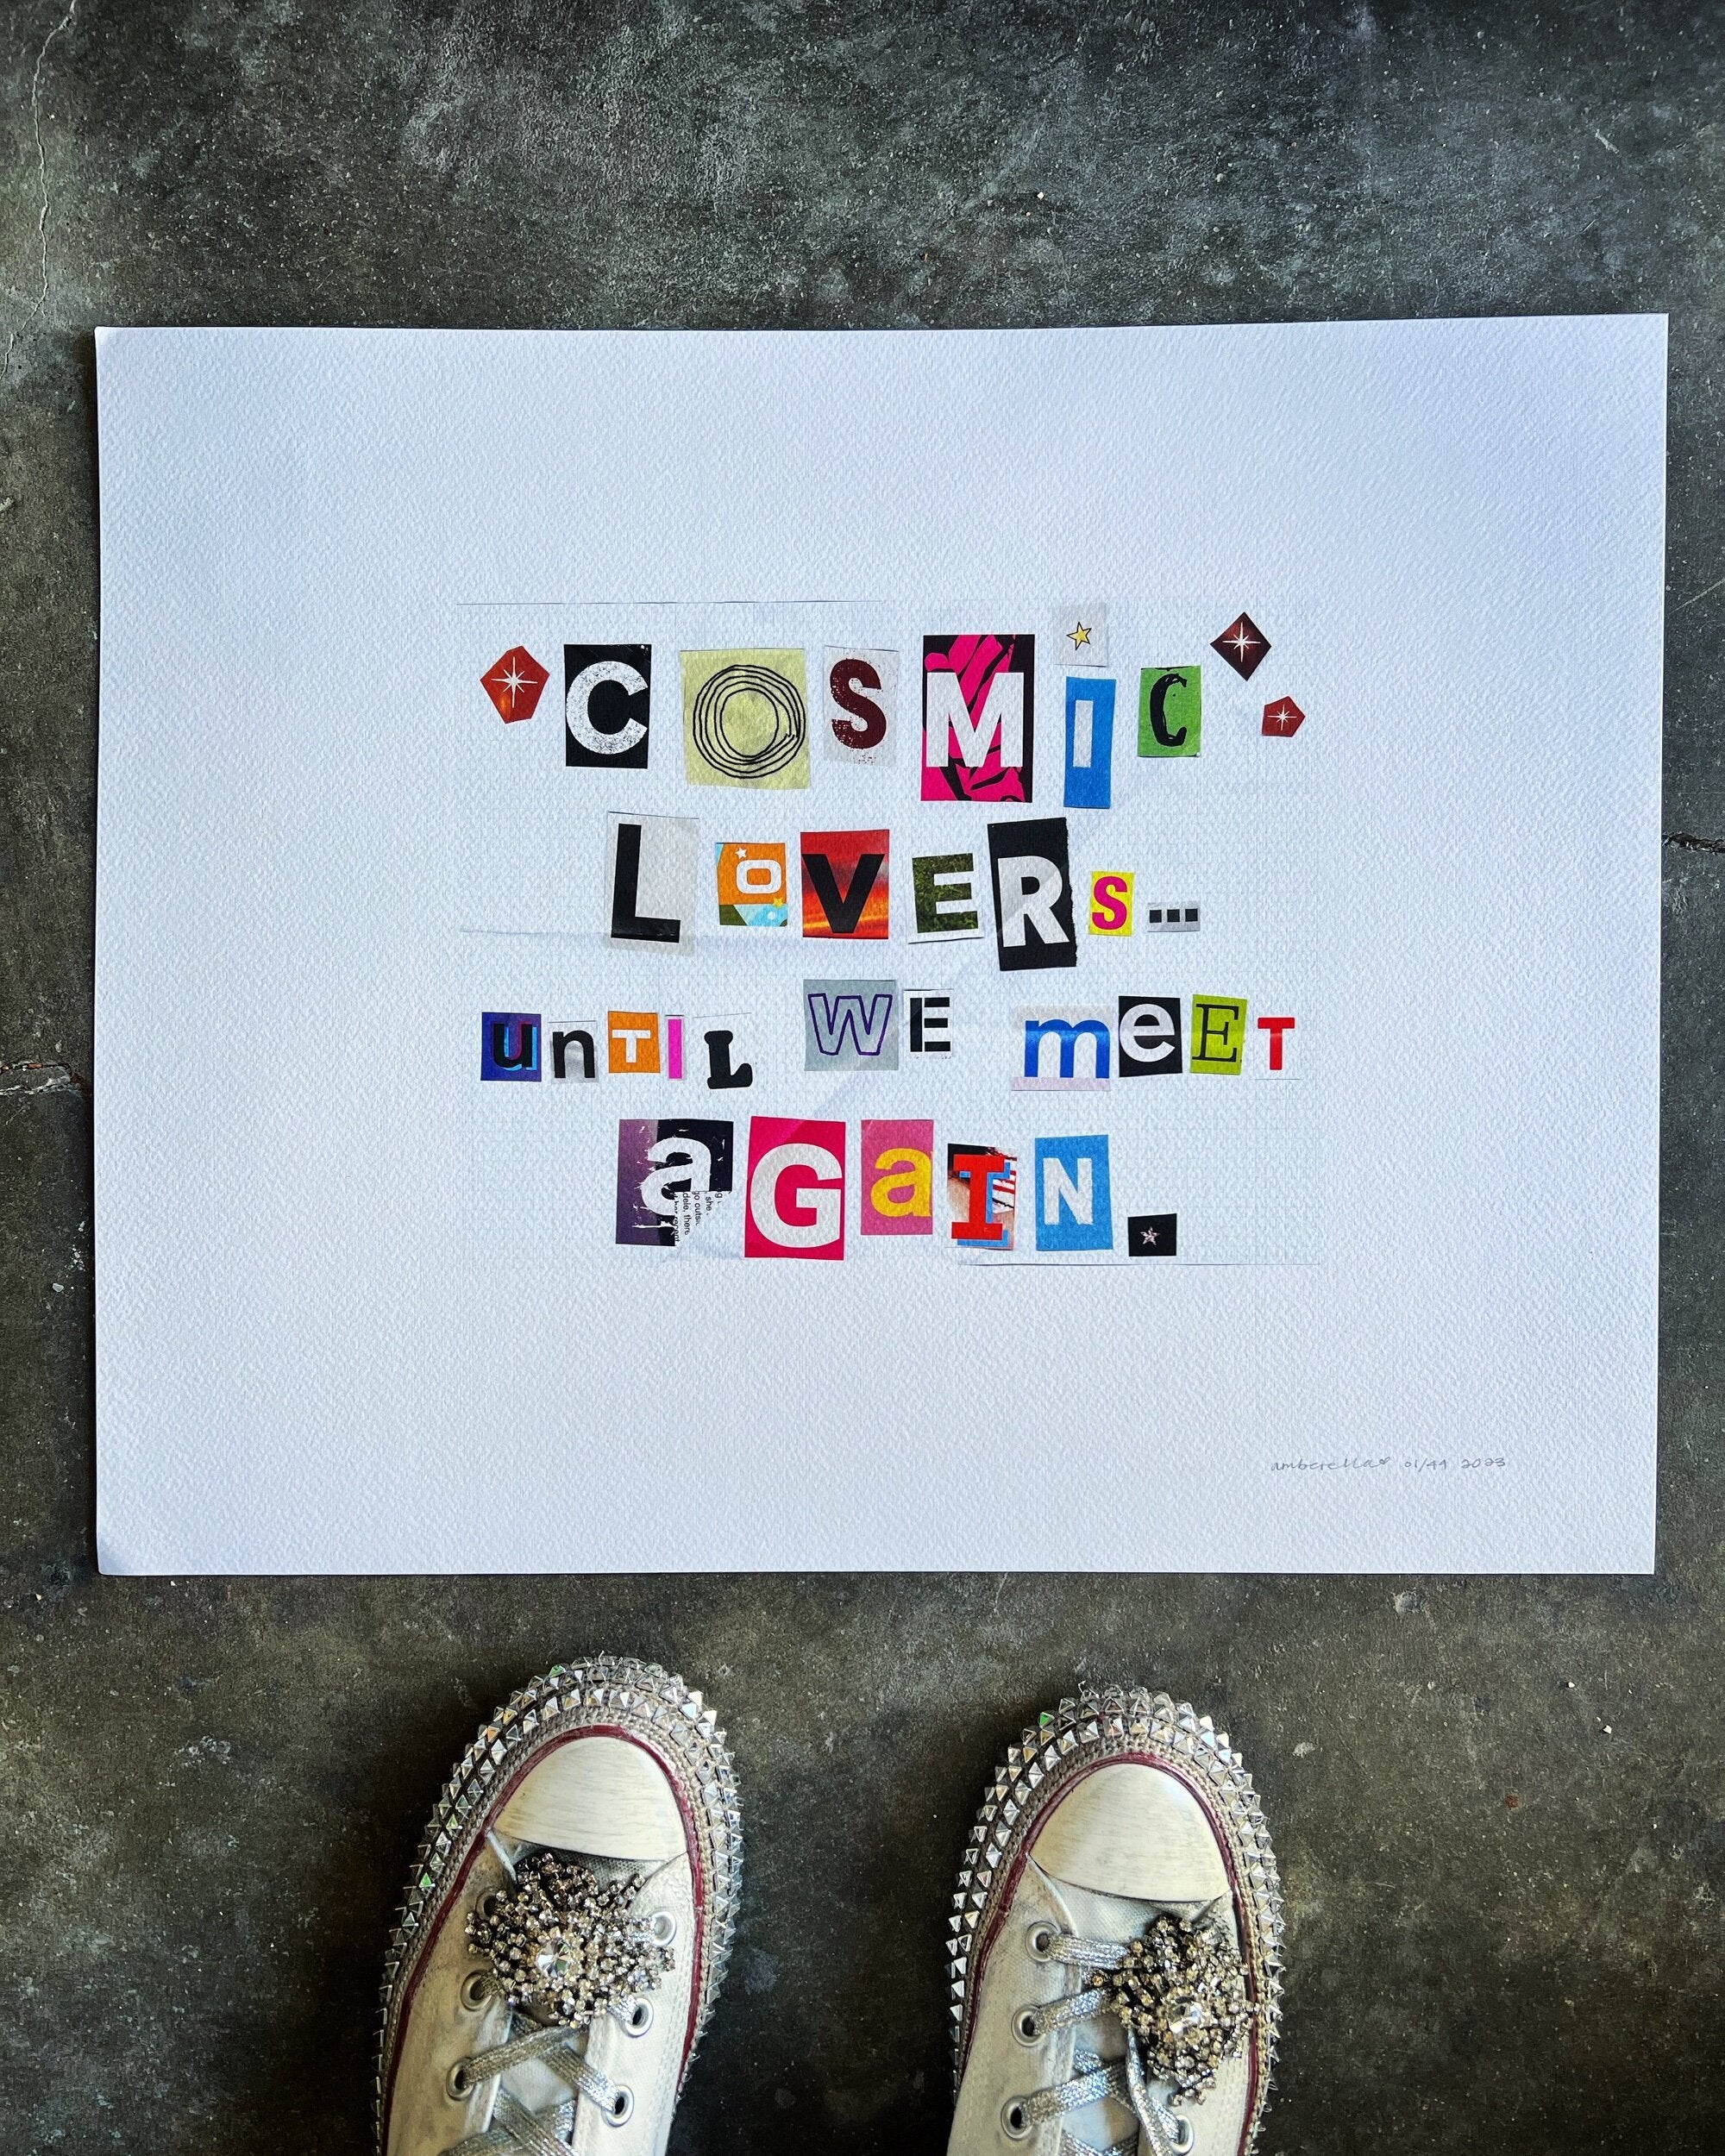 COSMIC
LOVERS...
unTIL WE meET
aGaIN.
amberella 01/44 2023